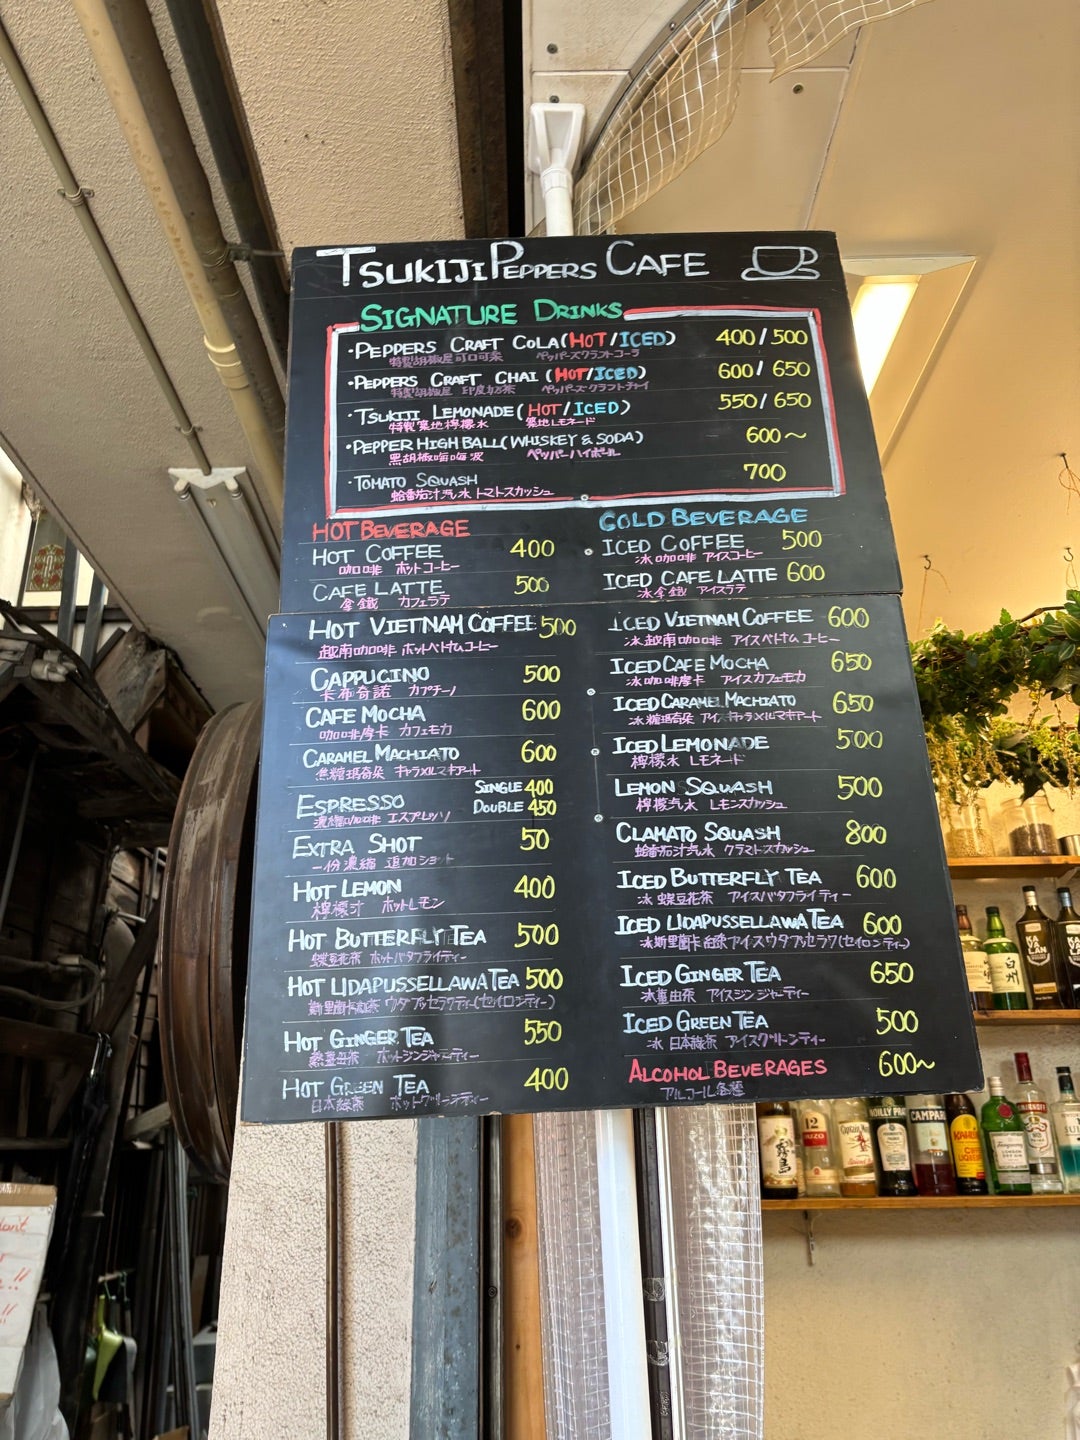 TSUKIJI PEPPERS CAFE
SIGNATURE DRINKS
・PEPPERS CRAFT COLA(HOT/ICED) 400/500
特製胡椒屋可口可楽 ペッパーズクラフトコーラ
・PEPPERS CRAFT CHAI (HOT/ICED) 600/650
特製胡椒屋 印度奶茶 ペッパーズクラフトチャイ
・TSUKIJI LEMONADE(HOT/ICED) 550/650
特製築地檸檬水 築地レモネード
・PEPPER HIGH BALL(WHISKEY & SODA) 600〜
黒胡椒嗨嗨波 ペッパーハイボール
・TOMATO SQUASH 700
蛤番茄汁汽水 トマトスカッシュ
HOT BEVERAGE
HOT COFFEE 400
咖啡 ホットコーヒー
CAFE LATTE 500
拿鐵 カフェラテ
HOT VIETNAM COFFEE 500
越南咖啡 ホットベトナムコーヒー
CAPPUCINO 500
卡布奇諾 カプチーノ
CAFE MOCHA 600
咖啡摩卡 カフェモカ
CARAMEL MACHIATO 600
焦糖瑪奇朵 キャラメルマキアート
ESPRESSO SINGLE 400
DOUBLE 450
濃縮咖啡 エスプレッソ
EXTRA SHOT 50
一份濃縮 追加ショット
HOT LEMON 400
檸檬汁 ホットレモン
HOT BUTTERFLY TEA 500
蝶豆花茶 ホットバタフライティー
HOT UDAPUSSELLAWA TEA 500
斯里蘭卡紅茶 ウダプッセラワティー(セイロンティー)
HOT GINGER TEA 550
熱薑母茶 ホットジンジャーティー
HOT GREEN TEA 400
日本緑茶 ホットグリーンティー
COLD BEVERAGE
ICED COFFEE 500
冰咖啡 アイスコーヒー
ICED CAFE LATTE 600
冰拿鐵 アイスラテ
ICED VIETNAM COFFEE 600
冰越南咖啡 アイスベトナムコーヒー
ICED CAFE MOCHA 650
冰咖啡摩卡 アイスカフェモカ
ICED CARAMEL MACHIATO 650
冰糖瑪奇朵 アイスキャラメルマキアート
ICED LEMONADE 500
檸檬水 レモネード
LEMON SQUASH 500
檸檬汽水 レモンスカッシュ
CLAMATO SQUASH 800
蛤番茄汁汽水 クラマトスカッシュ
ICED BUTTERFLY TEA 600
冰 蝶豆花茶 アイスバタフライティー
ICED UDAPUSSELLAWA TEA 600
冰斯里蘭卡紅茶 アイスウダプッセラワ(セイロンティー)
ICED GINGER TEA 650
冰薑母茶 アイスジンジャーティー
ICED GREEN TEA 500
冰 日本緑茶 アイスグリーンティー
ALCOHOL BEVERAGES 600〜
アルコール各種
白州
KAVALAN
霧島
12
NOILLY PRAT
CAMPARI
KAHLUA
Tanqueray
SMIRNOFF